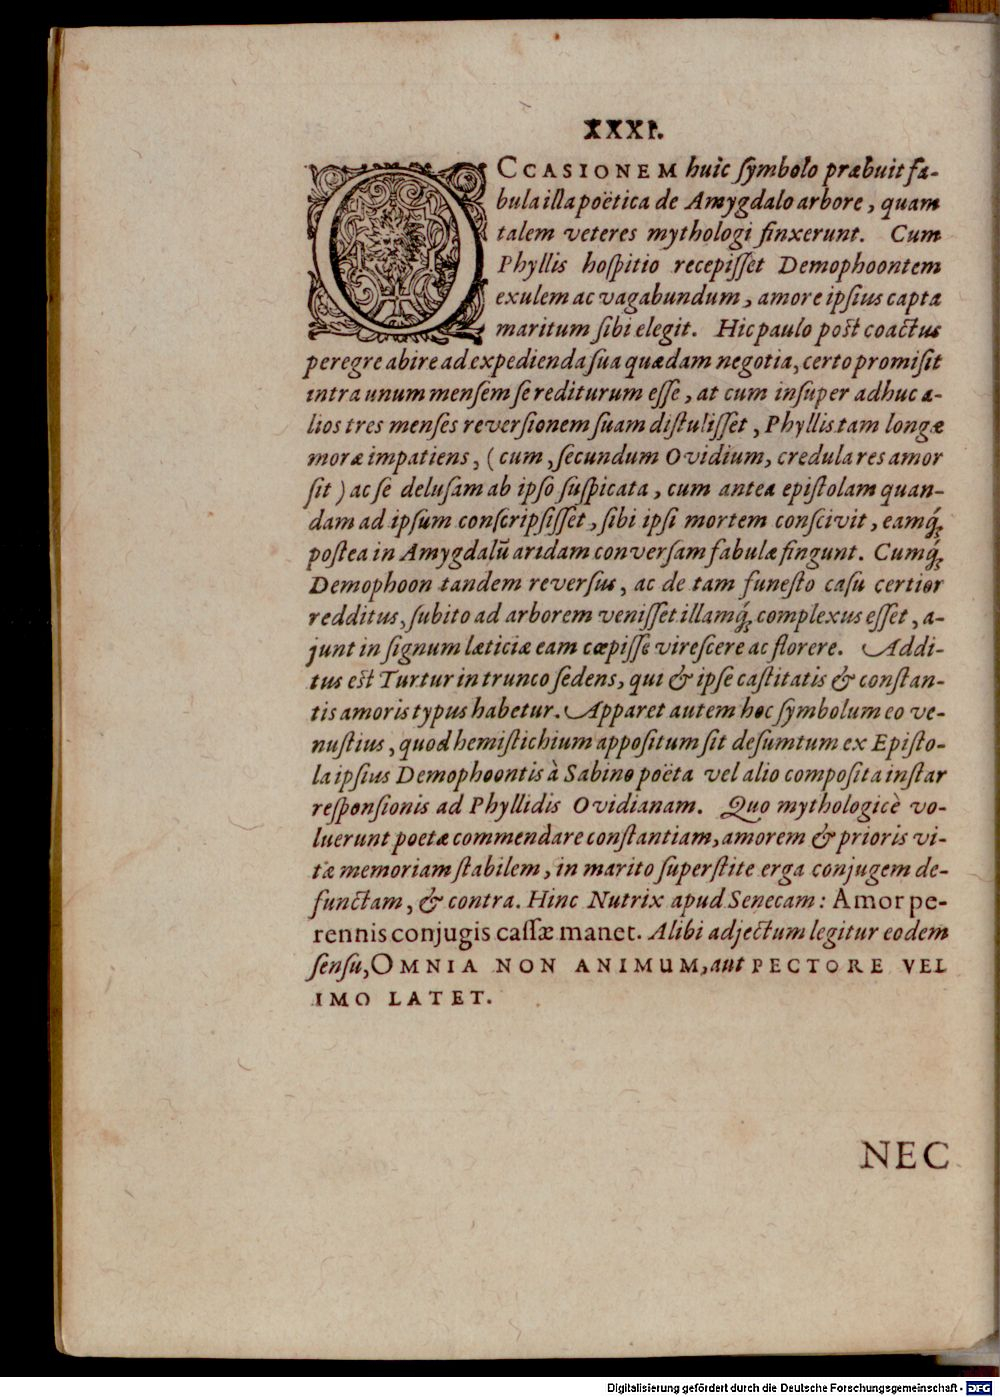 XXXI.
OCCASIONEM huic ſymbolo præbuit fa-
bula illa poëtica de Amygdalo arbore, quam
talem veteres mythologi finxerunt. Cum
Phyllis hoſpitio recepiſſet Demophoontem
exulem ac vagabundum, amore ipſius capta
maritum ſibi elegit. Hic paulo poſt coactus
peregre abire ad expedienda ſua quædam negotia, certo promiſit
intra unum menſem ſe rediturum eſſe, at cum inſuper adhuc a-
lios tres menſes reverſionem ſuam diſtuliſſet, Phyllis tam longæ
moræ impatiens, (cum, ſecundum Ovidium, credula res amor
ſit) ac ſe deluſam ab ipſo ſuſpicata, cum antea epiſtolam quan-
dam ad ipſum conſcripſiſſet, ſibi ipſi mortem conſcivit, eamq́;
poſtea in Amygdalũ aridam converſam fabulæ fingunt. Cumq́;
Demophoon tandem reverſus, ac de tam funeſto caſu certior
redditus, ſubito ad arborem veniſſet illamq́; complexus eſſet, a-
junt in ſignum læticiæ eam cœpiſſe vireſcere ac florere. Addi-
tus eſt Turtur in trunco ſedens, qui & ipſe caſtitatis & conſtan-
tis amoris typus habetur. Apparet autem hoc ſymbolum eo ve-
nuſtius, quod hemiſtichium appoſitum ſit deſumtum ex Epiſto-
la ipſius Demophoontis à Sabino poëta vel alio compoſita inſtar
reſponſionis ad Phyllidis Ovidianam. Quo mythologicè vo-
luerunt poetæ commendare conſtantiam, amorem & prioris vi-
tæ memoriam ſtabilem, in marito ſuperſtite erga conjugem de-
functam, & contra. Hinc Nutrix apud Senecam: Amor pe-
rennis conjugis caſſæ manet. Alibi adjectum legitur eodem
ſenſu, OMNIA NON ANIMUM, aut PECTORE VEL
IMO LATET.
NEC
Digitalisierung gefördert durch die Deutsche Forschungsgemeinschaft - DFG